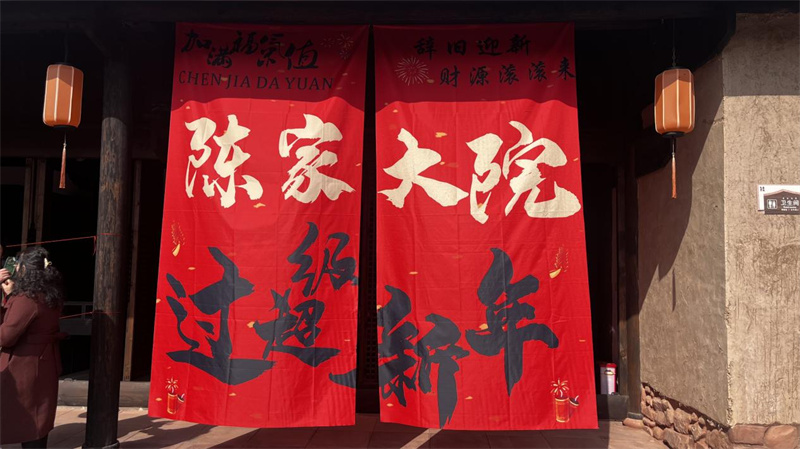 加满福氣值
CHEN JIA DA YUAN
辞旧迎新
财源滚滚来
陈家大院
过超级新年
卫生间